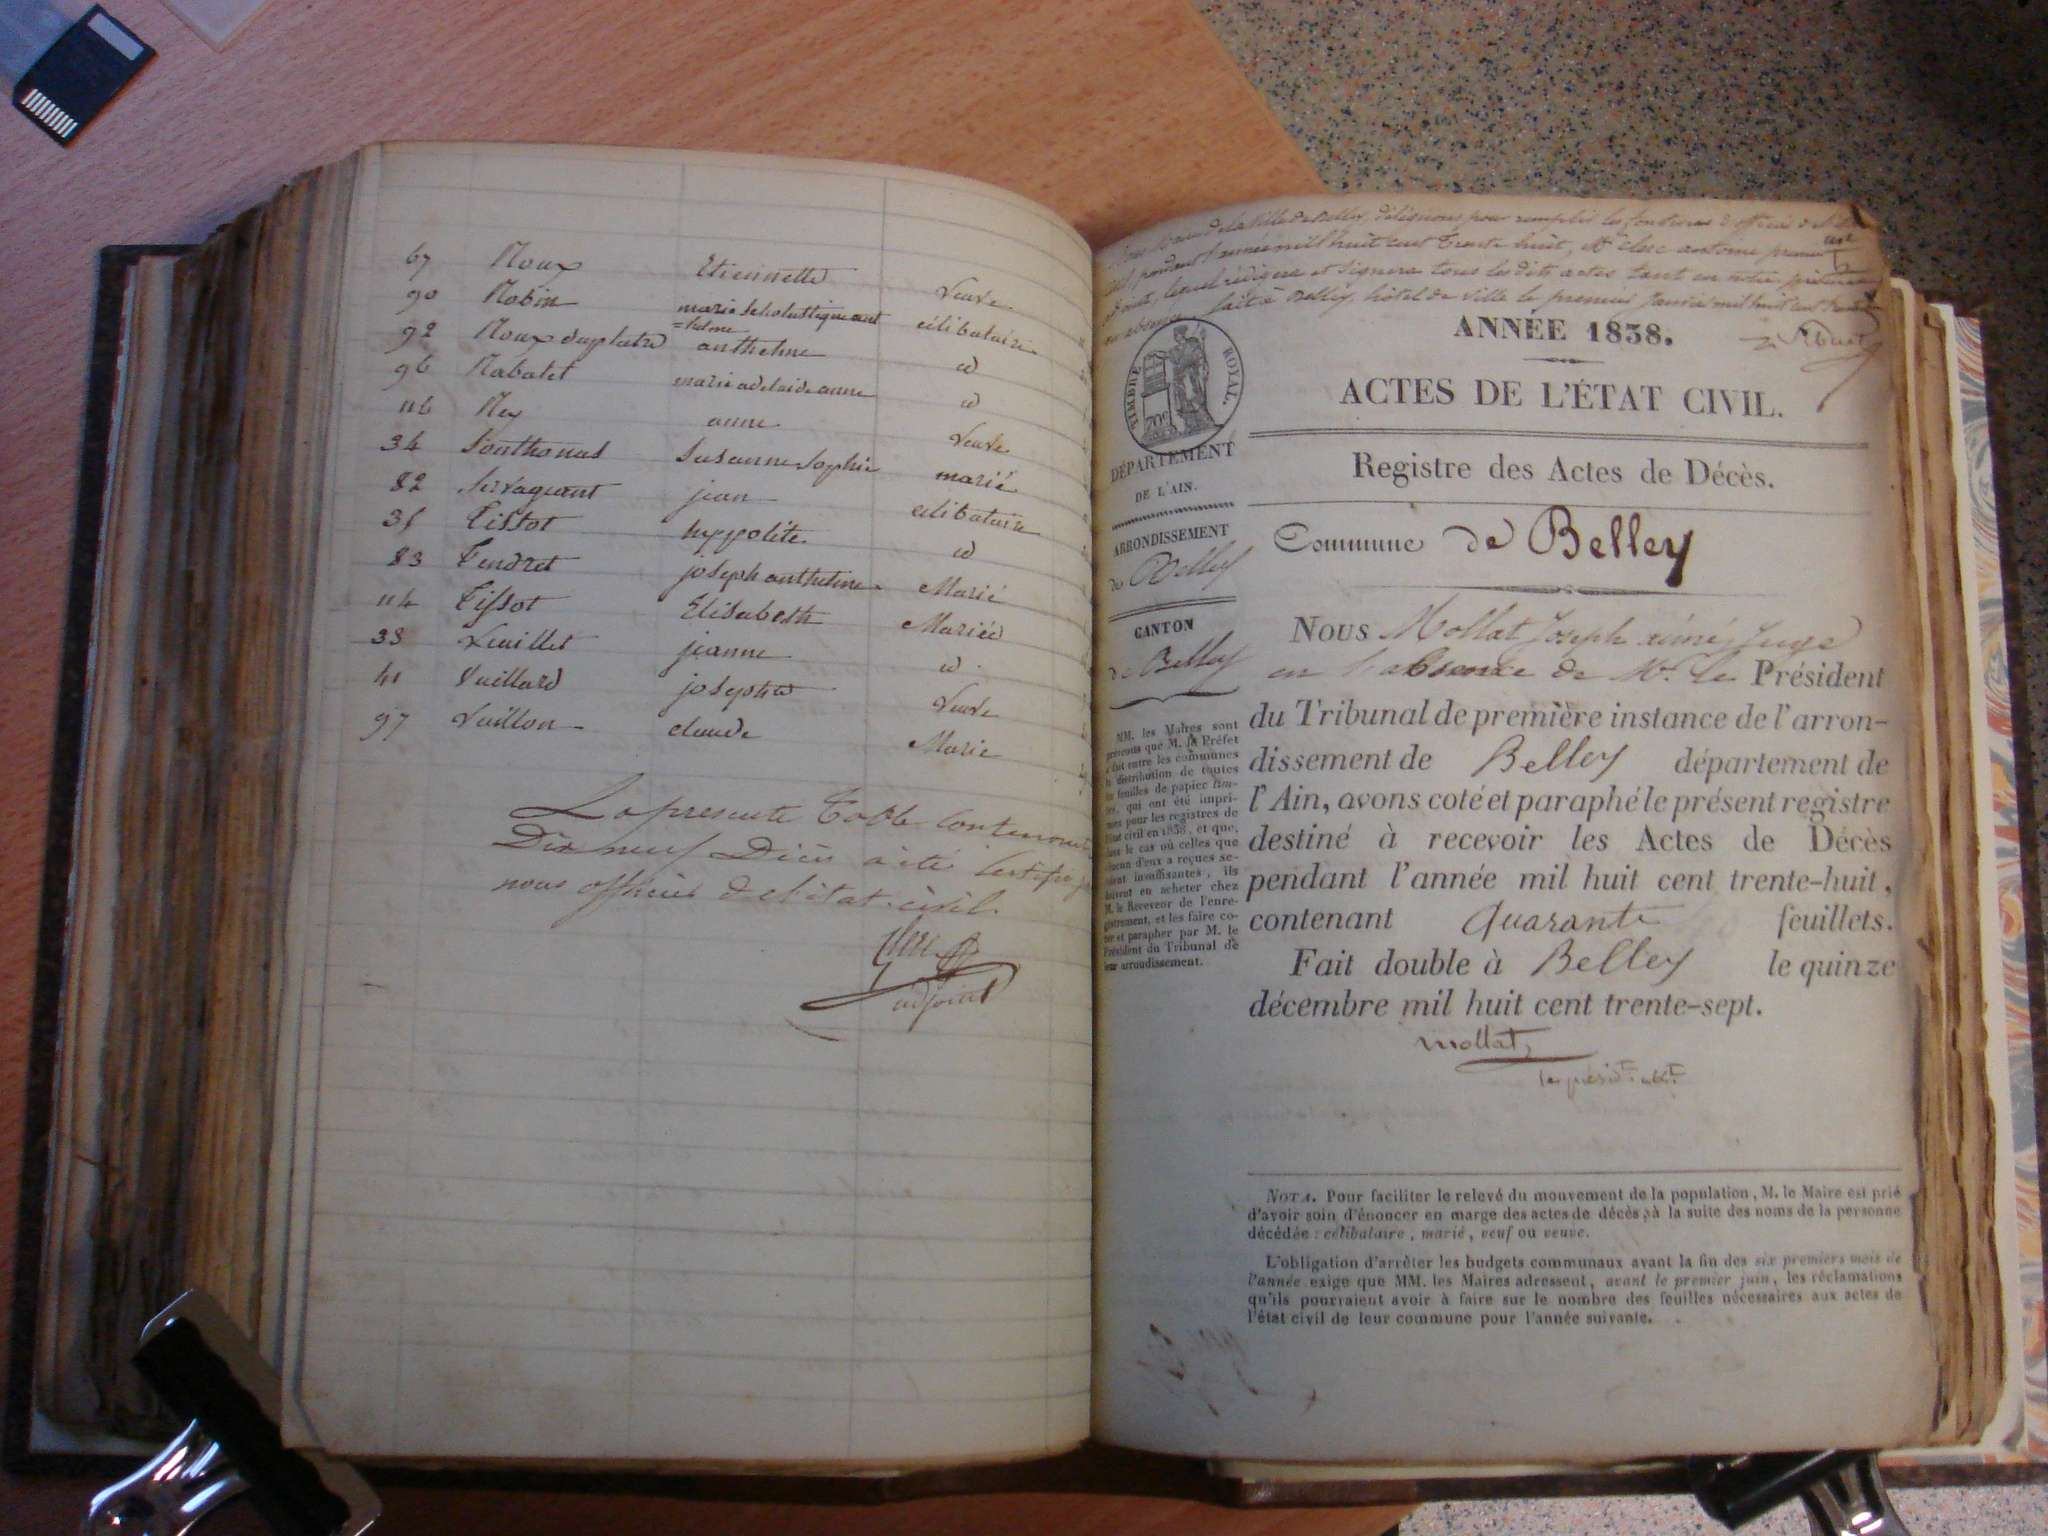 67 Roux Etiennette Veuve
90 Robin marie scholastique ant
=helme célibataire
92 Roux duplatre anthelme id
96 Rabatet marie adelaide anne id
116 Rey anne Veuve
34 Sonthonas Susanne Sophie marié
82 Servagent jean célibataire
35 Tissot hyppolite id
83 Tendret joseph anthelme Marié
114 Tissot Elisabeth Mariée
38 Vuillet jeanne id
41 Vuillard josephe Veuve
97 Vuillon claude Marié
La presente Table contenant
Dix neuf Décès a été Certifié
nous officier de l'état civil.
Clerc
adjoint
de la ville de Belley, déléguons pour remplir les fonctions d'officier de
pendant l'année mil huit cent trente huit, Mr Clerc antoine premier
adjoint, lequel rédigera et signera tous les dits actes tant en notre présence
absence fait à Belley, hôtel de ville le premier janvier mil huit cent
ANNÉE 1838.
TIMBRE ROYAL.
70c
ACTES DE L'ÉTAT CIVIL.
DÉPARTEMENT
DE L'AIN.
ARRONDISSEMENT
de Belley
CANTON
de Belley
MM. les Maires sont
prévenus que M. le Préfet
a fait entre les communes
la distribution de toutes
les feuilles de papier tim-
bré, qui ont été impri-
mées pour les registres de
l'état civil en 1838, et que,
dans le cas où celles que
chacun d'eux a reçues se-
raient insuffisantes, ils
doivent en acheter chez
M. le Receveur de l'enre-
gistrement, et les faire co-
ter et parapher par M. le
Président du Tribunal de
leur arrondissement.
Registre des Actes de Décès.
Commune de Belley
Nous Mollat Joseph aimé, Juge
en l'absence de Mr. le Président
du Tribunal de première instance de l'arron-
dissement de Belley département de
l'Ain, avons coté et paraphé le présent registre
destiné à recevoir les Actes de Décès
pendant l'année mil huit cent trente-huit,
contenant quarante feuillets.
Fait double à Belley le quinze
décembre mil huit cent trente-sept.
Mollat,
NOTA. Pour faciliter le relevé du mouvement de la population, M. le Maire est prié
d'avoir soin d'énoncer en marge des actes de décès, à la suite des noms de la personne
décédée : célibataire, marié, veuf ou veuve.
L'obligation d'arrêter les budgets communaux avant la fin des six premiers mois de
l'année exige que MM. les Maires adressent, avant le premier juin, les réclamations
qu'ils pourraient avoir à faire sur le nombre des feuilles nécessaires aux actes de
l'état civil de leur commune pour l'année suivante.